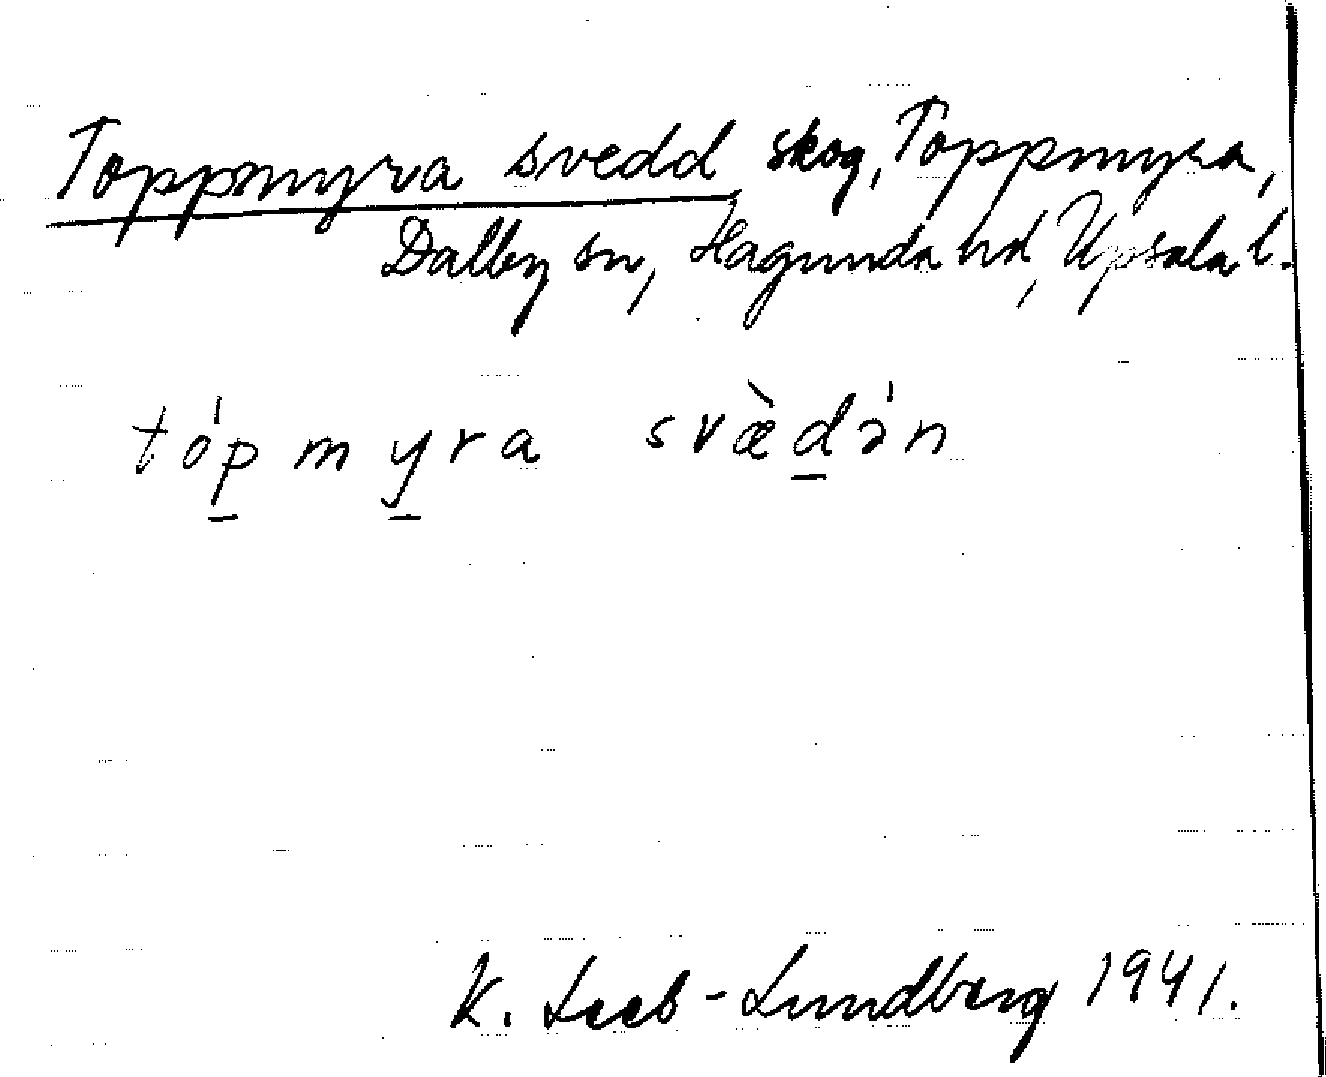 Toppmyra svedd skog, Toppmyra,
Dalby sn, Hagunda hd, Upsala l.
tópmyra svæ̀də́n
K. Leeb-Lundberg 1941.